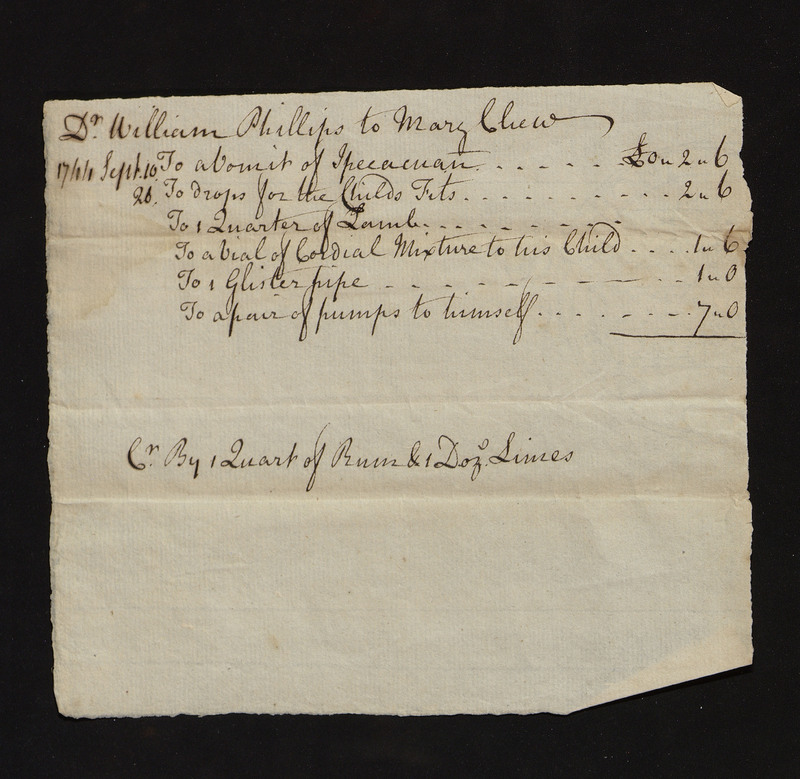 Dr. William Phillips to Mary Chew
1744 Sept. 10 To a Vomit of Ipecacuan . . . . . . £0 " 2 " 6
28. To drops for the Childs Fits . . . . . . . . . . . 2 " 6
To 1 Quarter of Lamb . . . . . . . . .
To a Vial of Cordial Mixture to his Child . . . . 1 " 6
To 1 Glister pipe - - - - - - - - - - 1 " 0
To a pair of pumps to himself . . . . . . . . 7 " 0
Cr. By 1 Quart of Rum & 1 Doz. Limes